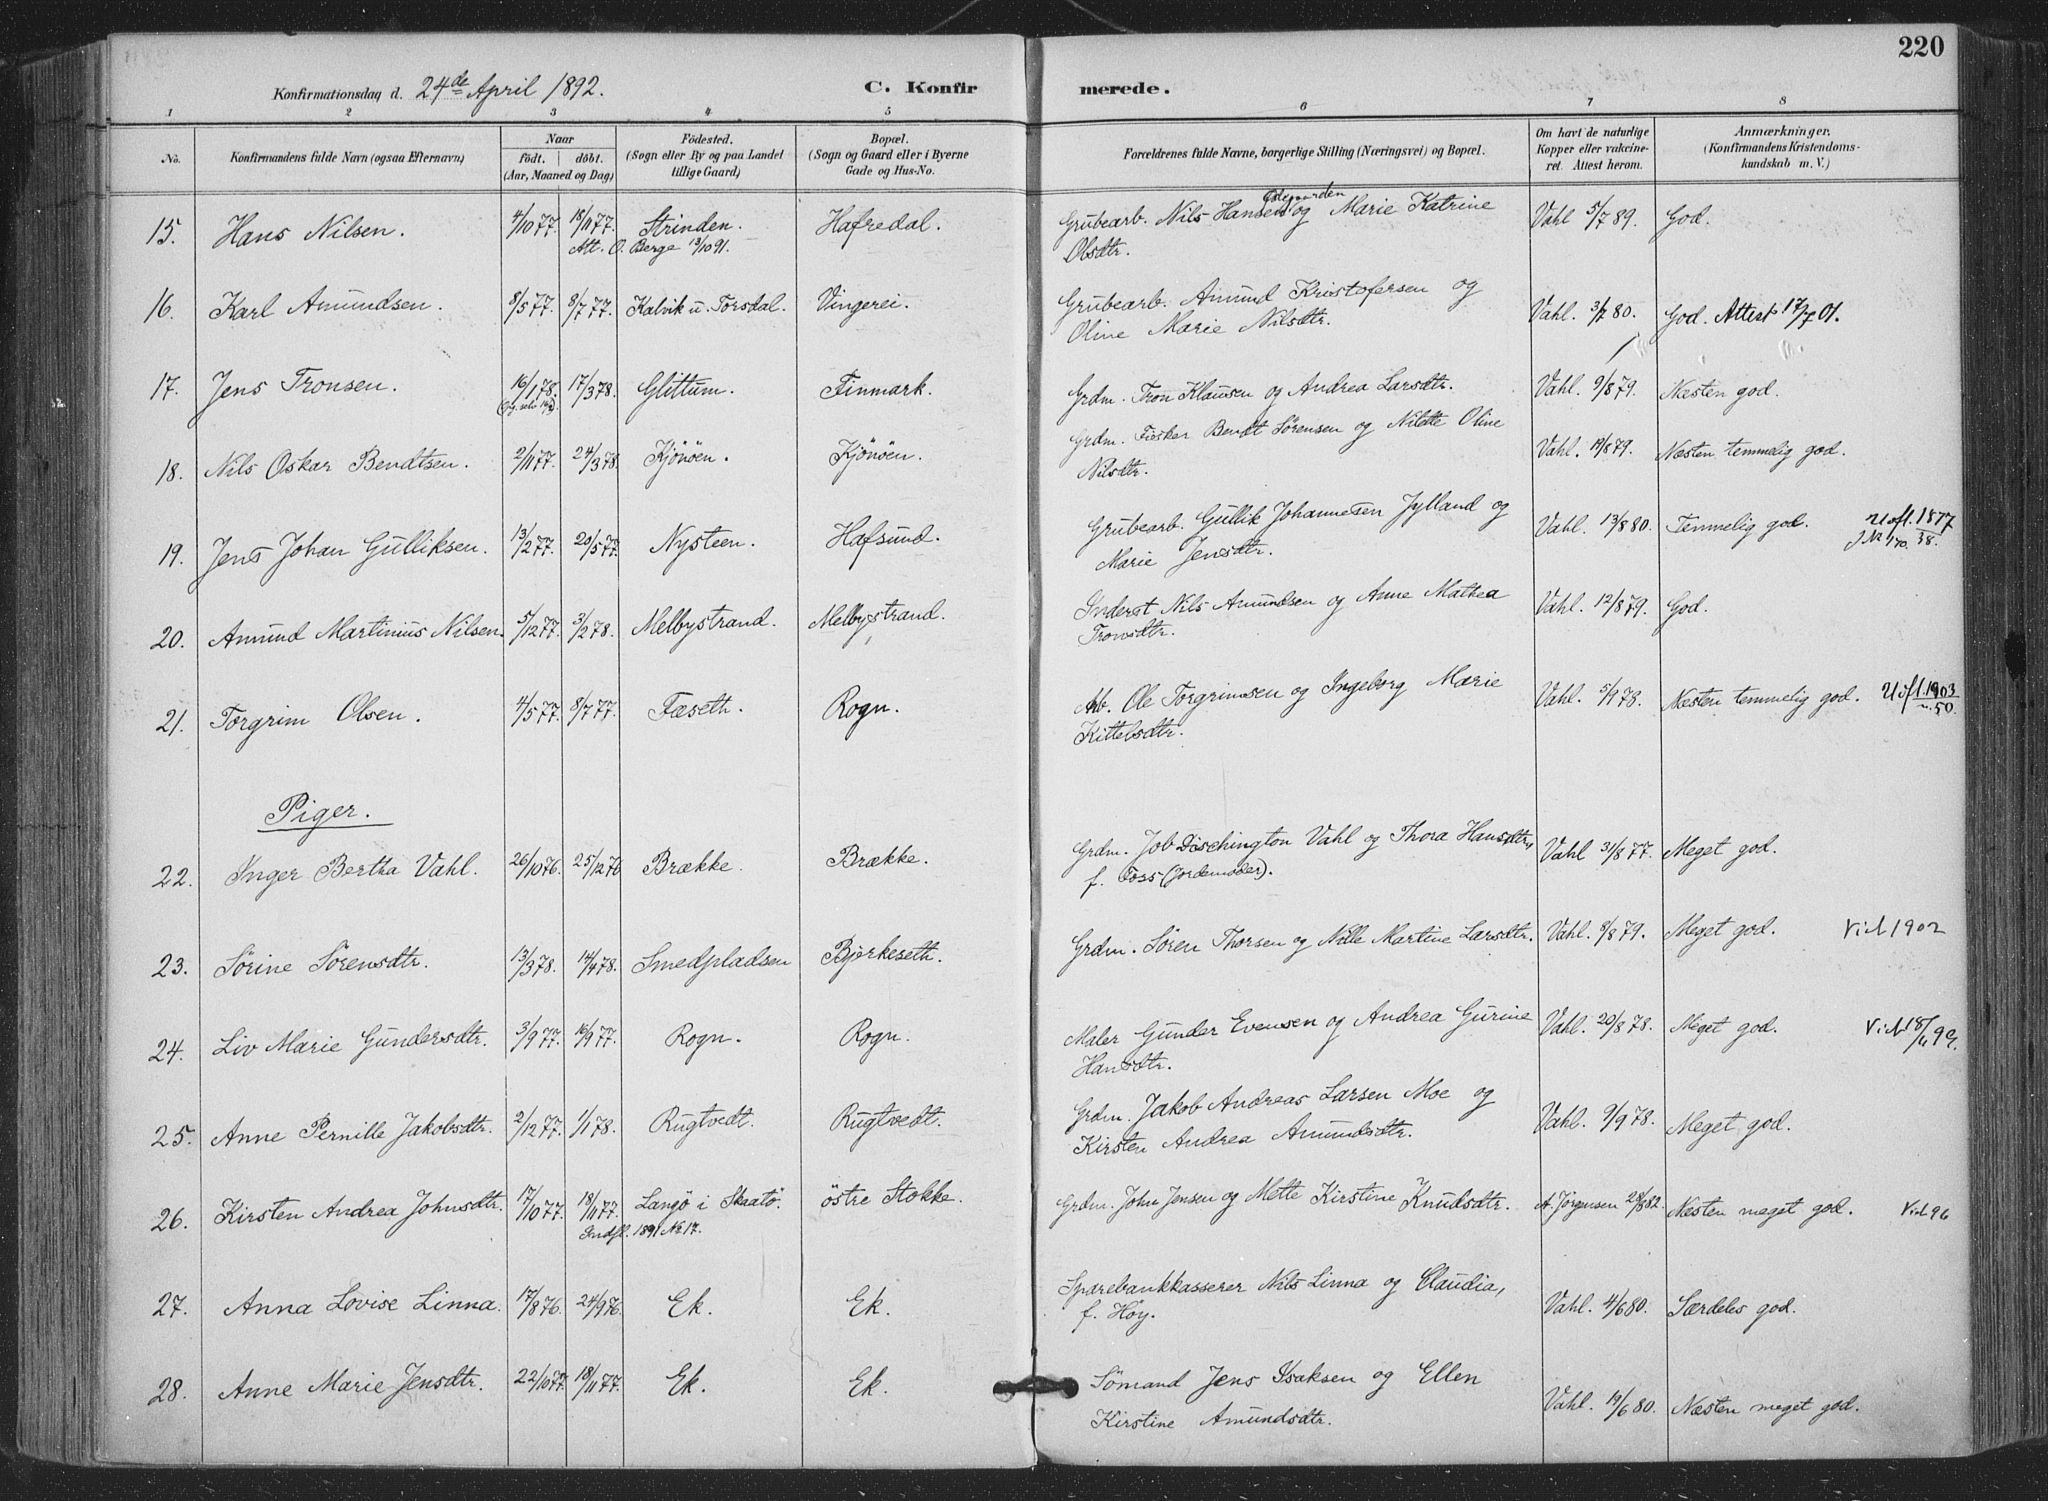 220
Konfirmationsdag d. 24de April 1892.
C. Konfirmerede.
1 2 3 4 5 6 7 8
No. Konfirmandens fulde Navn (ogsaa Efternavn) Naar født. døbt. (Aar, Maaned og Dag) Födested. (Sogn eller By og paa Landet tillige Gaard) Bopæl. (Sogn og Gaard eller i Byerne Gade og Hus-No. Forældrenes fulde Navne, borgerlige Stilling (Næringsvei) og Bopæl. Om havt de naturlige Kopper eller vakcineret. Attest herom. Anmærkninger. (Konfirmandens Kristendomskundskab m. V.)
15. Hans Nilsen. 4/10 77. 18/11 77. Strinden. Hafredal. Grubearb. Nils Hansen Ødegaarden og Marie Katrine Vahl 5/7 89. God.
Att. O. Berge 13/10 91. Olsdtr.
16. Karl Amundsen. 8/5 77. 8/7 77. Kalvik u. Torsdal. Vingerei. Grubearb. Amund Kristofersen og Vahl. 3/8 80. God. Attest 17/7 01.
Oline Marie Nilsdtr.
17. Jens Tronsen. 16/1 78. 17/3 78. Glittum. Finmark. Grdm. Tron Klausen og Andrea Larsdtr. Vahl. 9/8 79. Næsten god.
18. Nils Oskar Bendtsen. 2/11 77. 24/3 78. Kjönöen. Kjönöen. Grdm. Fisker Bendt Sörensen og Nilette Oline Vahl. 19/8 79. Næsten temmelig god.
Nilsdtr.
19. Jens Johan Gulliksen. 13/2 77. 20/5 77. Nysteen. Hafsund. Grubearb. Gullik Johannesen Jylland og Vahl. 13/8 80. Temmelig god. Udfl. 1877
Marie Jensdtr. 38.
20. Amund Martinius Nilsen. 5/12 77. 3/2 78. Melbystrand. Melbystrand. Inderst Nils Amundsen og Anne Mathea Vahl. 12/8 79. God.
Tronsdtr.
21. Torgrim Olsen. 4/5 77. 8/7 77. Fæseth. Rogn. Arb. Ole Torgrimsen og Ingeborg Marie Vahl. 5/9 78. Næsten temmelig god. Udfl. 1903 n. 50.
Kittelsdtr.
Piger.
22. Inger Bertha Vahl. 26/10 76. 25/12 76 Brække. Brække. Grdm. Job Dischington Vahl og Thora Hansdtr, Vahl 31/8 77. Meget god.
f. Foss (Jordemoder).
23. Sörine Sörensdtr. 13/3 78. 14/4 78. Smedpladsen Bjerkeseth. Grdm. Sören Thorsen og Nille Martine Larsdtr. Vahl. 9/8 79. Meget god. Viel 1902
24. Liv Marie Gundersdtr. 3/9 77. 16/9 77. Rogn. Rogn. Maler Gunder Evensen og Andrea Gurine Vahl. 20/8 78. Meget god. Viel 18/11 99.
Hansdtr.
25. Anne Pernille Jakobsdtr. 2/12 77. 1/1 78. Rugtvedt. Rugtvedt. Grdm. Jakob Andreas Larsen Moe og Vahl. 9/9 78. Meget god.
Kirsten Andrea Amundsdtr.
26. Kirsten Andrea Johnsdtr. 17/10 77. 18/11 77. Langö i Skaatö. östre Stokke. Grdm. John Jensen og Mette Kirstine Knudsdtr. A. Jörgensen 28/8 82. Næsten meget god. Viel 96
Indfl. 1891 No 17.
27. Anna Lovise Linna. 17/8 76. 24/9 76. Ek. Ek. Sparebankkasserer Nils Linna og Claudia, Vahl. 4/6 80. Særdeles god.
f. Höy.
28. Anne Marie Jensdtr. 22/10 77. 18/11 77. Ek. Ek. Sömand Jens Isaksen og Ellen Vahl. 19/6 80. Næsten meget god.
Kirstine Amundsdtr.